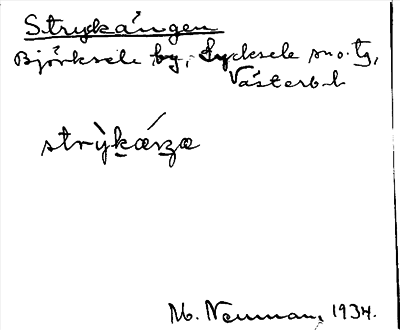 Strykången
Björksele by, Lycksele sn o. tg,
Västerb. l.
strỳkǽŋa
M. Neuman, 1934.